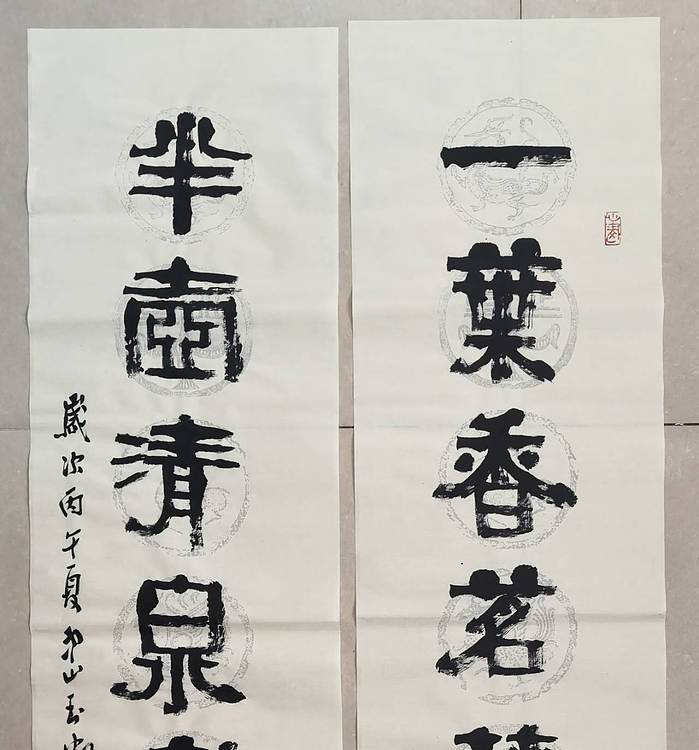 一葉香茗
半壺清泉
歲次丙午夏
山玉